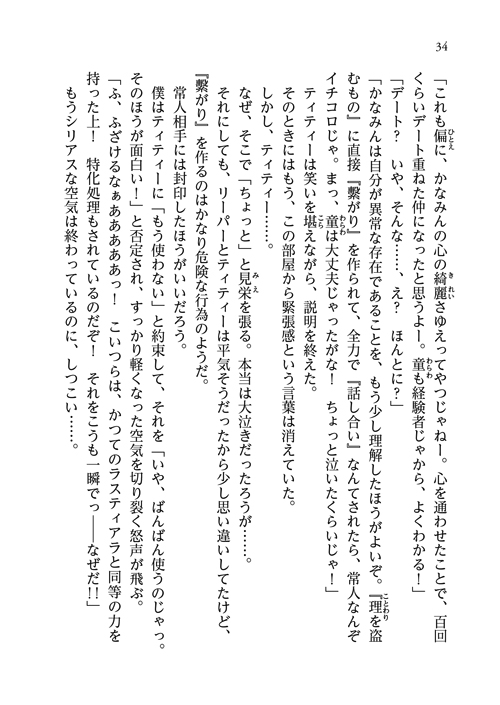 34
「これも偏に、かなみんの心の綺麗さゆえってやつじゃねー。心を通わせたことで、百回
くらいデート重ねた仲になったと思うよー。童も経験者じゃから、よくわかる！」
「デート？　いや、そんな……、え？　ほんとに？」
「かなみんは自分が異常な存在であることを、もう少し理解したほうがよいぞ。『理を盗
むもの』に直接『繋がり』を作られて、全力で『話し合い』なんてされたら、常人なんぞ
イチコロじゃ。まっ、童は大丈夫じゃったがな！　ちょっと泣いたくらいじゃ！」
ティティーは笑いを堪えながら、説明を終えた。
そのときにはもう、この部屋から緊張感という言葉は消えていた。
しかし、ティティー……。
なぜ、そこで「ちょっと」と見栄を張る。本当は大泣きだったろうが……。
それにしても、リーパーとティティーは平気そうだったから少し思い違いしてたけど、
『繋がり』を作るのはかなり危険な行為のようだ。
常人相手には封印したほうがいいだろう。
僕はティティーに「もう使わない」と約束して、それを「いや、ばんばん使うのじゃっ。
そのほうが面白い！」と否定され、すっかり軽くなった空気を切り裂く怒声が飛ぶ。
「ふ、ふざけるなぁあああああっ！　こいつらは、かつてのラスティアラと同等の力を
持った上！　特化処理もされているのだぞ！　それをこうも一瞬でっ――なぜだ!!」
もうシリアスな空気は終わっているのに、しつこい……。